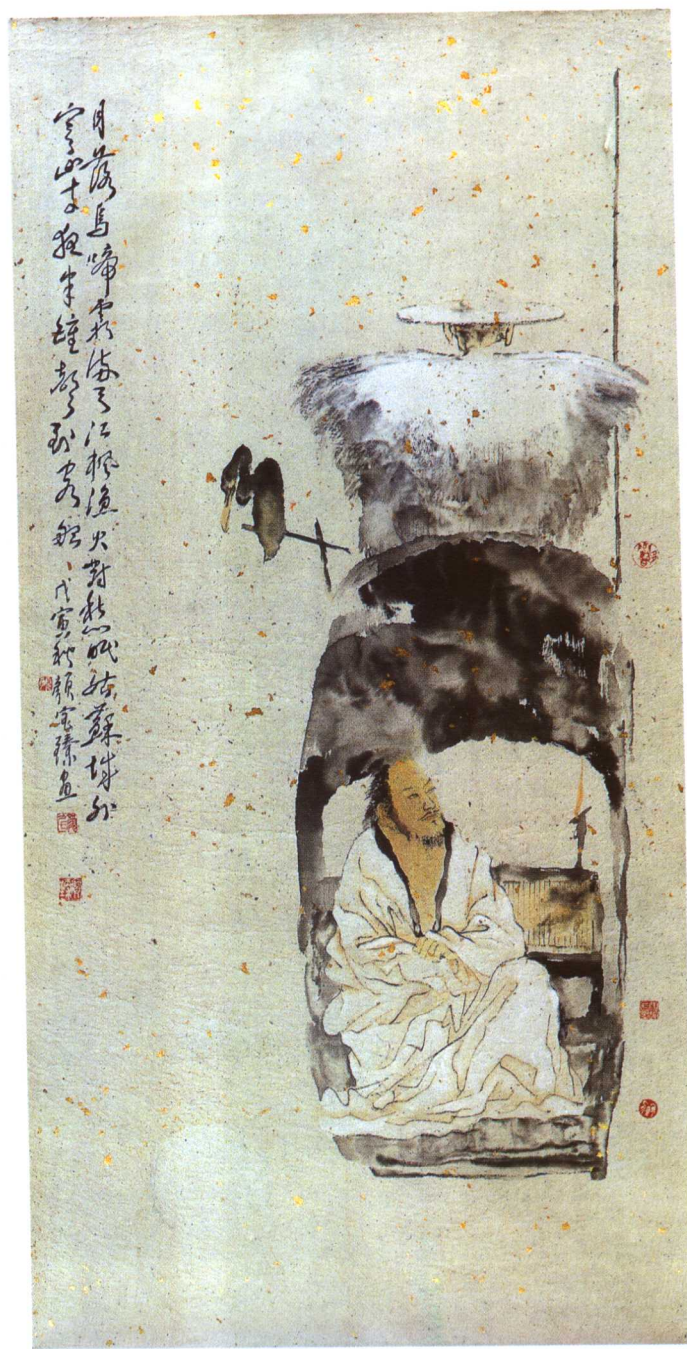 月落烏啼霜满天江枫渔火對愁眠姑蘇城外
寒山寺夜半鐘聲到客船 戊寅秋顏宝臻画